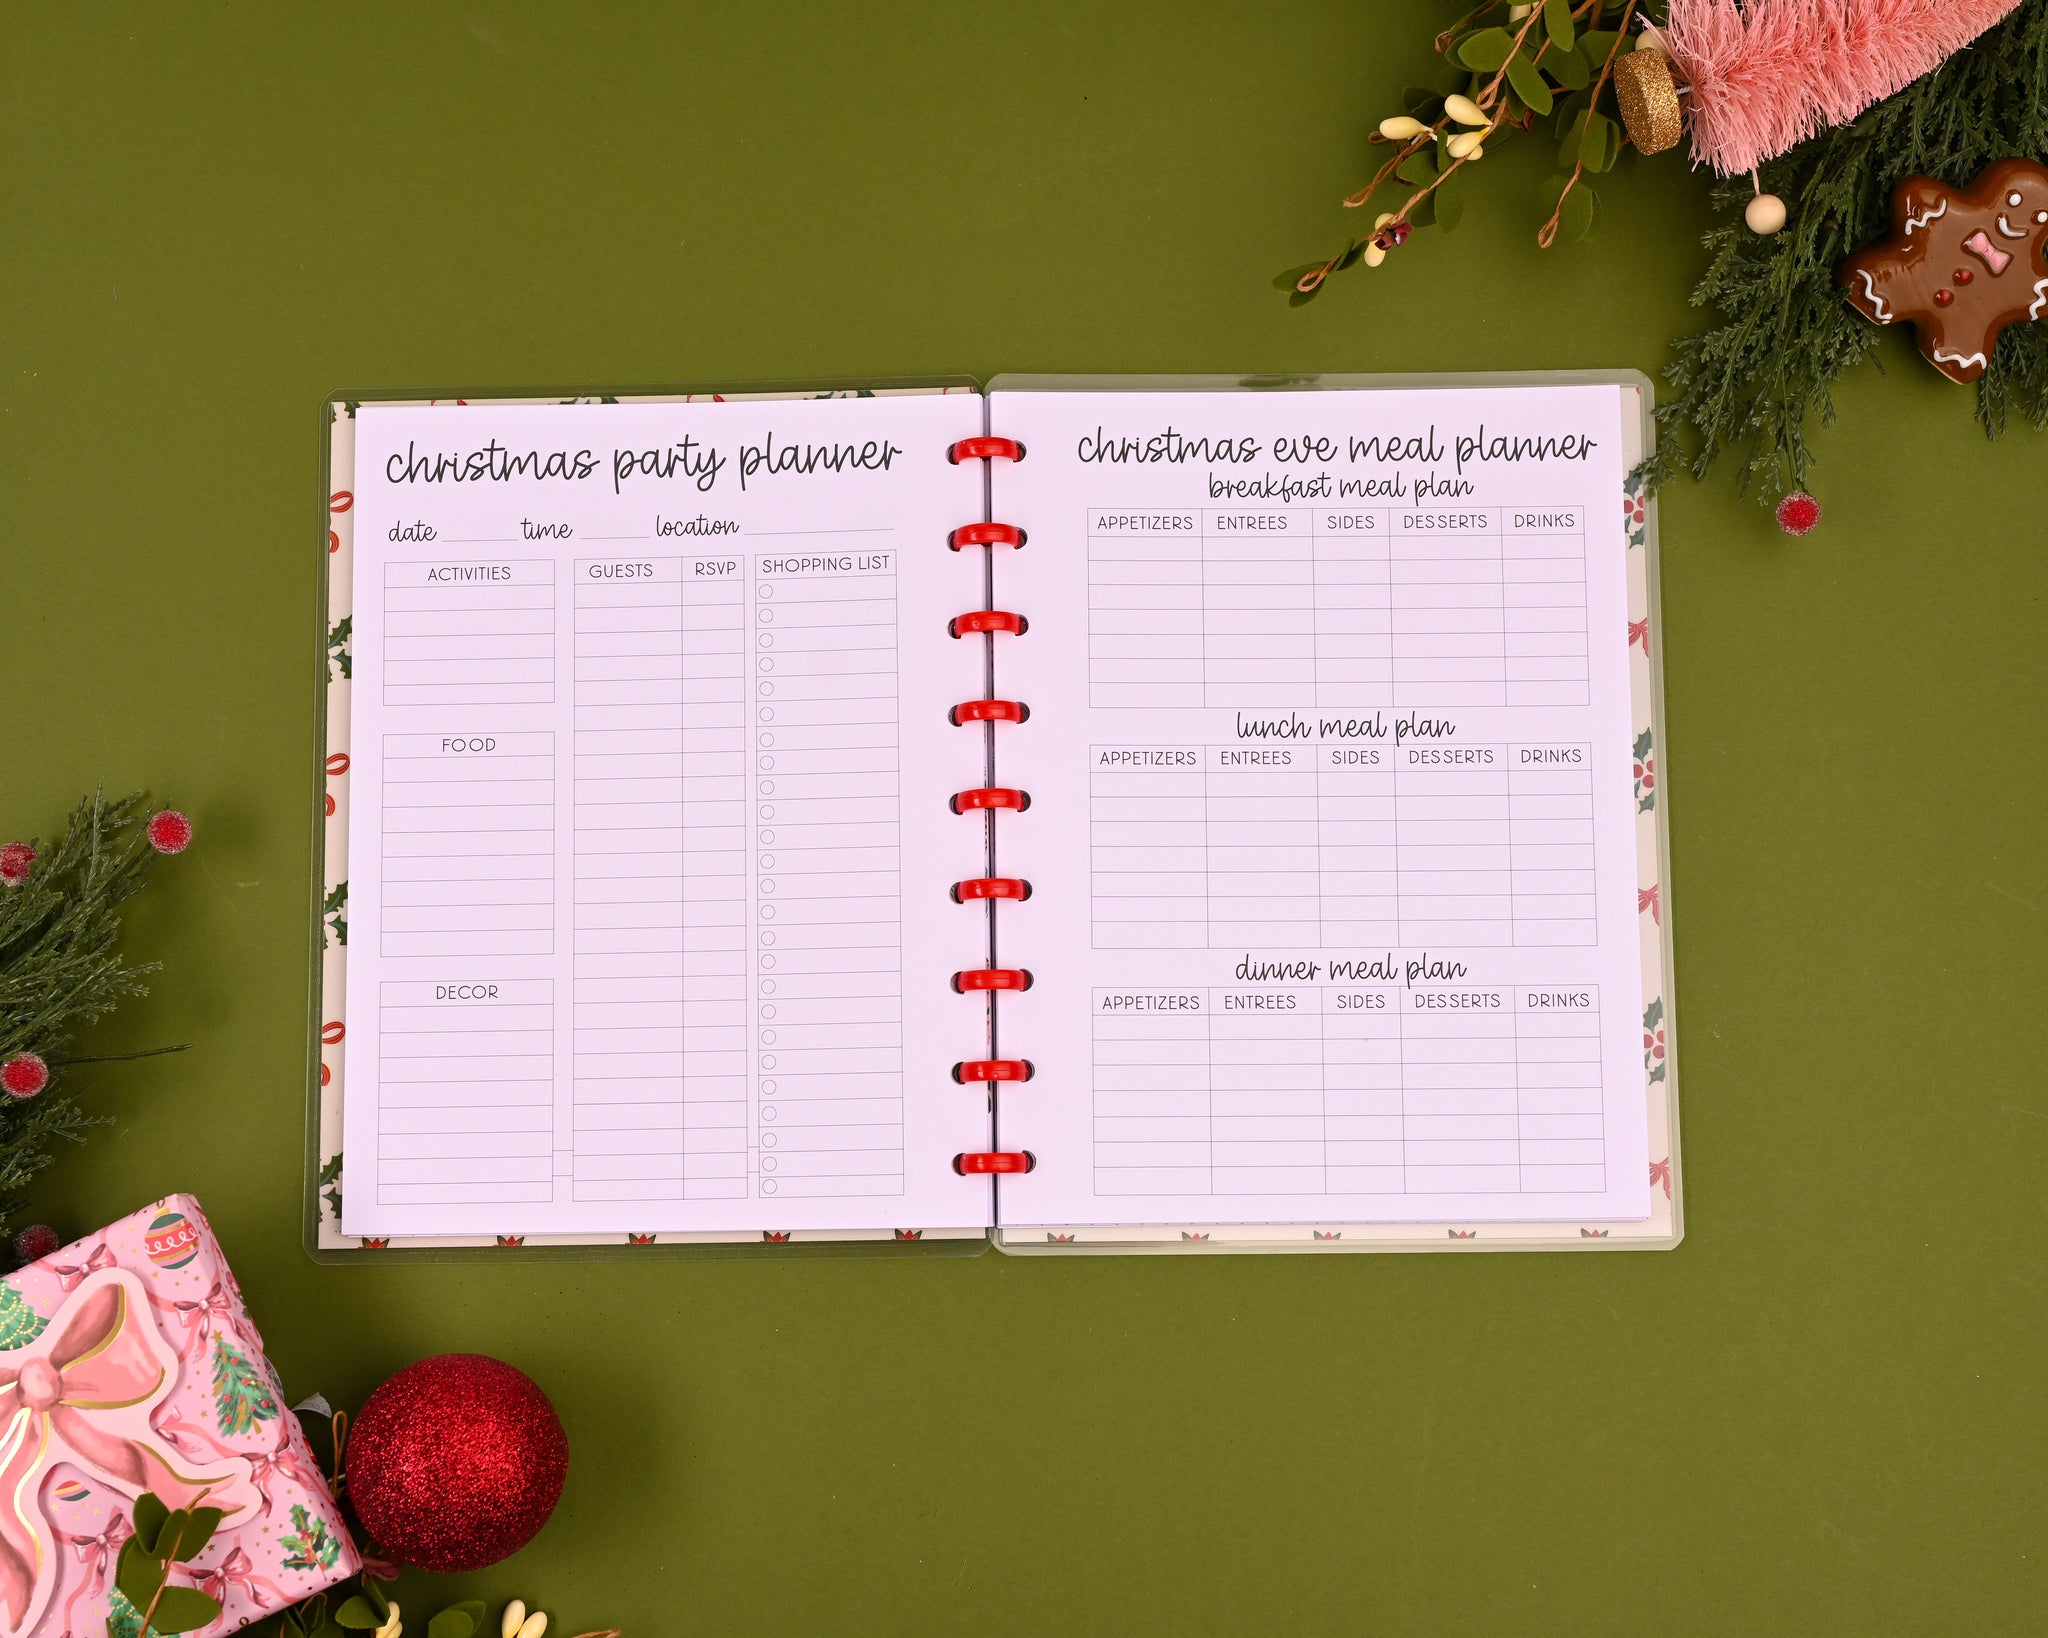 christmas party planner
date time location
ACTIVITIES
FOOD
DECOR
GUESTS RSVP
SHOPPING LIST
christmas eve meal planner
breakfast meal plan
APPETIZERS ENTREES SIDES DESSERTS DRINKS
lunch meal plan
APPETIZERS ENTREES SIDES DESSERTS DRINKS
dinner meal plan
APPETIZERS ENTREES SIDES DESSERTS DRINKS